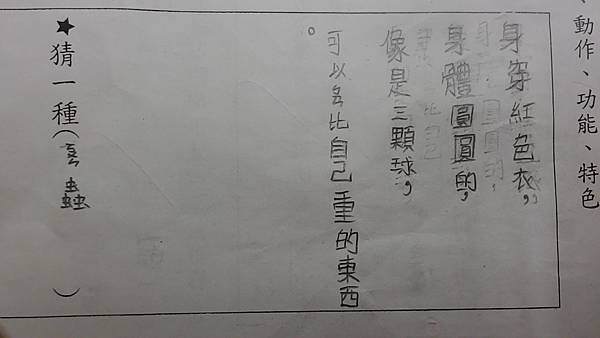 、動作、功能、特色
身穿紅色衣,
身體圓圓的,
像是三顆球,
可以ㄅㄢ比自己重的東西
。
★猜一種(ㄎㄨㄣ蟲)